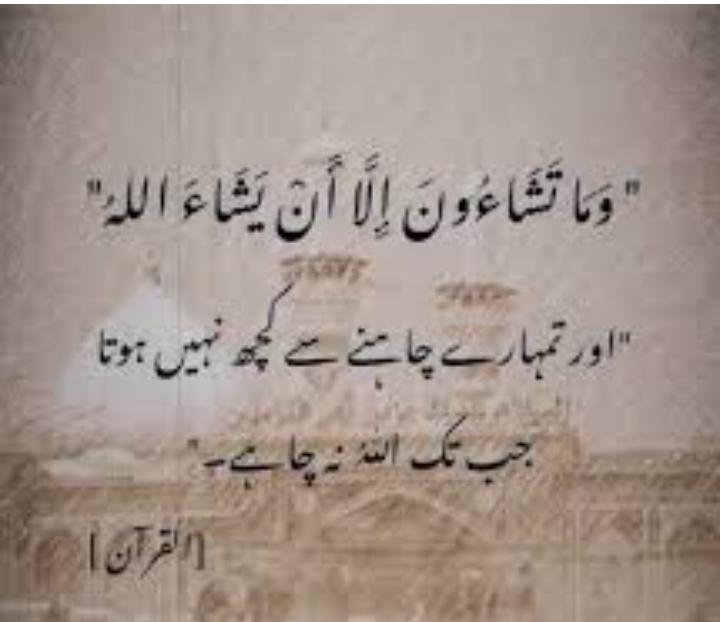 "وَمَا تَشَاءُونَ إِلَّا أَنْ يَشَاءَ اللهُ"
"اور تمہارے چاہنے سے کچھ نہیں ہوتا
جب تک اللہ نہ چاہے۔"
[القرآن]